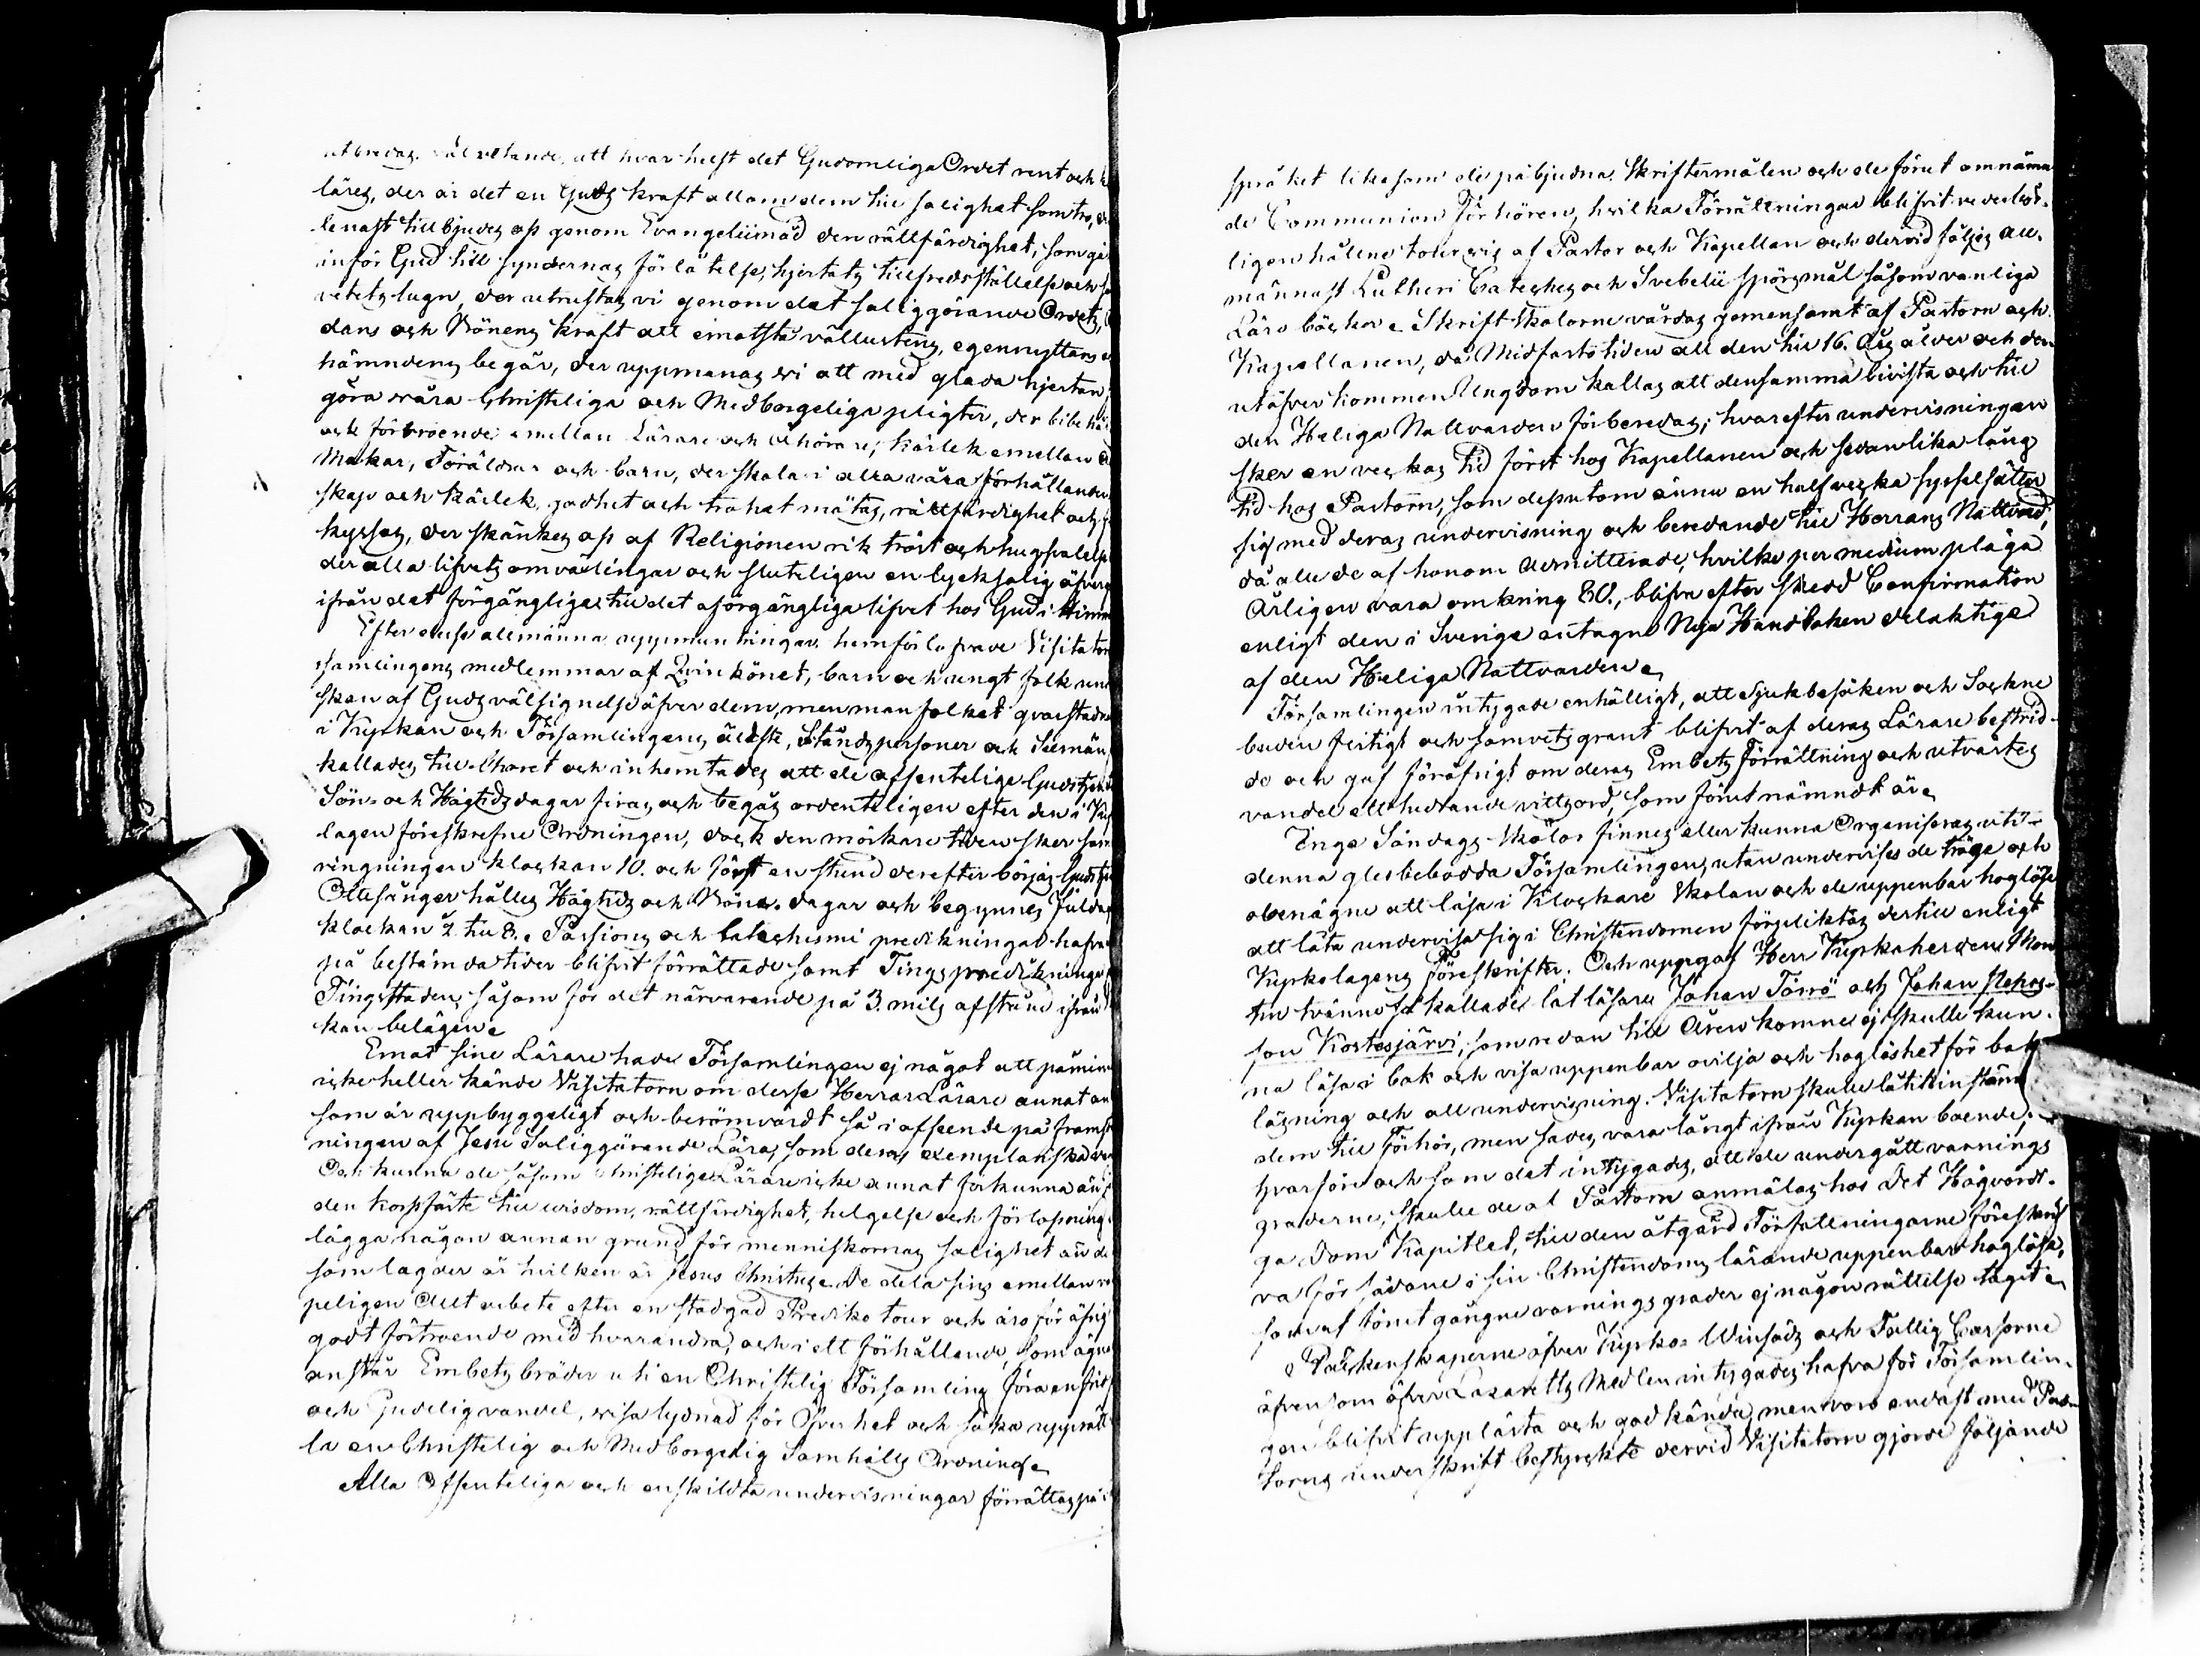 utbredas. väl vetande, att hvar helst det Gudomliga Ordet rent och
läres, der är det en Guds kraft allom dem till salighet som tro,
lenast tillbjudes oss genom Evangelium den rättfärdighet, som
inför Gud till syndernas förlåtelse, hjertats tillfredsställelse och
vetets lugn, der utrustas vi genom det saliggörande Ordets,
dans och Bönens kraft att emotstå vällustens, egennyttans
hämndens begär, der uppmanas vi att med glada hjertan
göra våra Christeliga och Medborgeliga pligter, der bibe
och förtroende emellan Lärare och Åhörare, kärlek emellan
Makar, Föräldrar och barn, der skola i alla våra förhållanden
skap och kärlek, godhet och trohet mötas, rättfärdighet och
kyssas, der skänkes oss af Religionen rik tröst och hugsvalelse
der alla lifvets omvexlingar och sluteligen en lycksalig öfver
ifrån det förgängliga till det oförgängliga lifvet hos Gud i Himm
Efter desse allmänna uppmuntringar, hemförlofvade Visitator
samlingens medlemmar af Qvinkönet, barn och ungt folk un
skan af Guds välsignelse öfver dem, men manfolket qvarstadne
i Kyrkan och Församlingens äldste, Ståndspersoner och Sexmän
kallades till Choret och inhemtades att de offenteliga Gudstjenst
Sön- och Högtidsdagar firas och begås ordenteligen efter den i Kyr
lagen föreskrefne Ordningen, dock den mörkare tiden sker sam
ringningen klockan 10. och först en stund derefter börjas Gudstje
Ottesånger hålles Högtids och Böne-dagar och begynnes Juldag
klockan 7 till 8. Passions och Catechismi predikningar hafva
på bestämda tider blifvit förrättade samt Tings predikningar
Tingsstaden, såsom för det närvarande på 3. mils afstånd ifrån
kan belägen.
Emot sine Lärare hade Församlingen ej något att påmin
icke heller kände Visitatorn om desse Herrar Lärare annat än
som är uppbyggeligt och berömvärdt så i afseende på framst
ningen af Jesu Saliggörande Lära, som deras exemplariska
Och kunna de såsom Christelige Lärare icke annat förkunna än
den korsfäste till wisdom, rättfärdighet, helgelse och förlossning
lägga någon annan grund för menniskornas salighet än de
som lagder är hvilken är Jesus Christus. De dela sins emellan
peligen Allt arbete efter en stadgad Prediko tour och äro för öfrigt
godt förtroende med hvarandra, och i ett förhållande, som ägn
anstår Embets bröder uti en Christelig Församling föra en frid
och Gudelig vandel, visa lydnad för Öfverhet och söka upprätt
la en Christelig och Medborgelig Samhälls Ordning.
Alla Offenteliga och enskildta undervisningar förrättas på
språket likasom de påbjudna Skriftermålen och de förut omnäm
de Communion Förhören, hvilka Förrättningar blifvit vederbör-
ligen hållne tourvis af Pastor och Kapellan och dervid följes all-
männast Lutheri Cateches och Svebelii spörsmål såsom vanliga
Läro böcker. Skrift-Skolorne vårdas gemensamt af Pastorn och
Kapellanen, då Midfastotiden all den till 16. Års ålder och den
utöfver kommen Ungdom kallas att densamma bivista och till
den Heliga Nattvarden förberedas; hvarefter undervisningen
sker en veckas tid först hos Kapellanen och sedan lika lång
tid hos Pastorn, som dessutom ännu en half vecka sysselsätter
sig med deras undervisning och beredande till Herrans Nattvard,
då alle de af honom Admitterade, hvilke per medium pläga
Årligen vara omkring 80., blifva efter skedd Confirmation
enligt den i Sverige antagne Nya Handboken delaktige
af den Heliga Nattvarden.
Församlingen intygade enhälligt, att Sjukbesöken och Sockne
buden flitigt och samvetsgrant blifvit af deras Lärare bestrid-
de och gaf föröfrigt om deras Embets förrättning och utvärtes
vandel allt hedrande vittsord, som förut nämndt är.
Inga Söndags-Skolor finnes eller kunna Organiseras uti
denna glesbebodda Församlingen, utan undervises de tröge och
obenägne att läsa i Klockare Skolan och de uppenbar hoglöse
att låta undervisa sig i Christendomen förpliktas dertill enligt
Kyrkolagens Föreskrifter. Och uppgaf Herr Kyrkoherden Mon
tin tvänne så kallade låt läsare Johan Törrö och Johan Mehos-
son Kostosjärvi, som redan till Åren komne ej skulle kun-
na läsa i bok och visa uppenbar ovilja och hoglöshet för bok
läsning och all undervisning. Visitatorn skulle låtit instäm
dem till Förhör, men sades vara långt ifrån Kyrkan boende,
hvarföre och som det intygades, att de undergått varnings
graderne, skulle de af Pastorn anmälas hos Det Högvördi-
ga Dom Kapitlet, till den åtgärd Författningarne föreskrif
va för sådane i sin Christendoms lärande uppenbar hoglöse,
som af tömt gångne varnings grader ej någon rättelse tagit.
Räkenskaperne öfver Kyrko-Winsäds och Fattig Cassorne
äfven som öfver Lazaretts Medlen intygades hafva för Församlin-
gen blifvit upplästa och godkända, men voro endast med Pas-
torns underskrift bestyrkte dervid Visitatorn gjorde följande